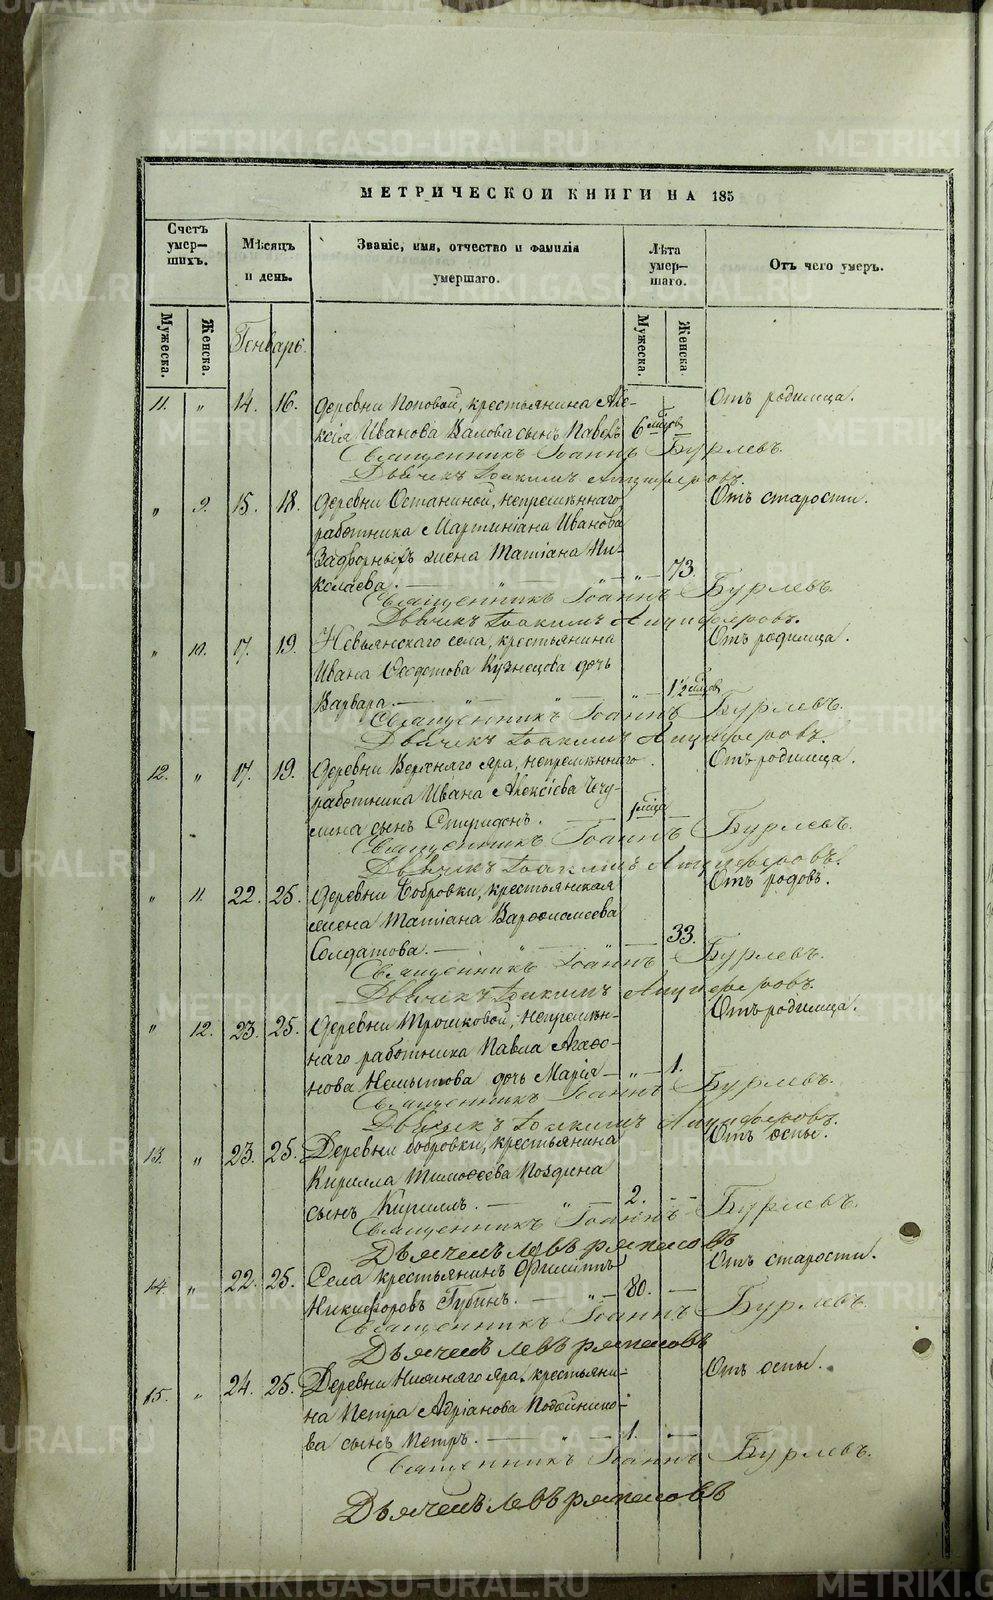 METRIKI.GASO-URAL.RU
МЕТРИЧЕСКОЙ КНИГИ НА 185
Счетъ умер- шихъ.
Мѣсяцъ и день.
Званіе, имя, отчество и фамилія умершаго.
Лѣта умер- шаго.
Отъ чего умеръ.
Мужеска.
Женска.
Генварь.
Мужеска.
Женска
11. " 14. 16. Деревни Поповой, крестьянина Але- Отъ родимца.
ксѣя Иванова Валова сынъ Павелъ 6 мѣсяц.
Священникъ Іоаннъ Бурлевъ.
Дьячекъ Іоакимъ Анциферовъ.
" 9. 15. 18. Деревни Останиной, непремѣннаго Отъ старости.
работника Мартиніана Иванова
Задворныхъ жена Татіана Ни-
колаева. — " — " — 73.
Священникъ Іоаннъ Бурлевъ.
Дьячекъ Іоакимъ Анциферовъ.
" 10. 17. 19. Невьянскаго села, крестьянина Отъ родимца.
Ивана Ѳедотова Кузнецова дочь
Варвара. — " — " — 1½ мѣсяц
Священникъ Іоаннъ Бурлевъ.
Дьячекъ Іоакимъ Анциферовъ.
12. " 17. 19. Деревни Верхняго Яра, непремѣннаго Отъ родимца.
работника Ивана Алексѣева Чечу-
лина сынъ Спиридонъ. — 1 мѣсяца
Священникъ Іоаннъ Бурлевъ.
Дьячекъ Іоакимъ Анциферовъ.
" 11. 22. 25. Деревни Бобровки, крестьянская Отъ родовъ.
жена Татіана Варѳоломеева
Солдатова. — " — 33.
Священникъ Іоаннъ Бурлевъ.
Дьячекъ Іоакимъ Анциферовъ.
" 12. 23. 25. Деревни Трошковой, непремѣн- Отъ родимца.
наго работника Павла Агаѳо-
нова Немытова дочь Марія — " — 1.
Священникъ Іоаннъ Бурлевъ.
Дьячекъ Іоакимъ Анциферовъ.
13. " 23. 25. Деревни Бобровки, крестьянина Отъ оспы.
Кирилла Тимоѳеева Поздина
сынъ Кириллъ. — " — 2. —
Священникъ Іоаннъ Бурлевъ.
Дьячекъ Левъ
14. " 22. 25. Села крестьянинъ Филиппъ Отъ старости.
Никифоровъ Губинъ. — " — 80. —
Священникъ Іоаннъ Бурлевъ.
Дьячекъ Левъ
15. " 24. 25. Деревни Нижняго Яра, крестьяни- Отъ оспы.
на Петра Адріанова Подойнико-
ва сынъ Петръ. — " — 1. —
Священникъ Іоаннъ Бурлевъ.
Дьячекъ Левъ